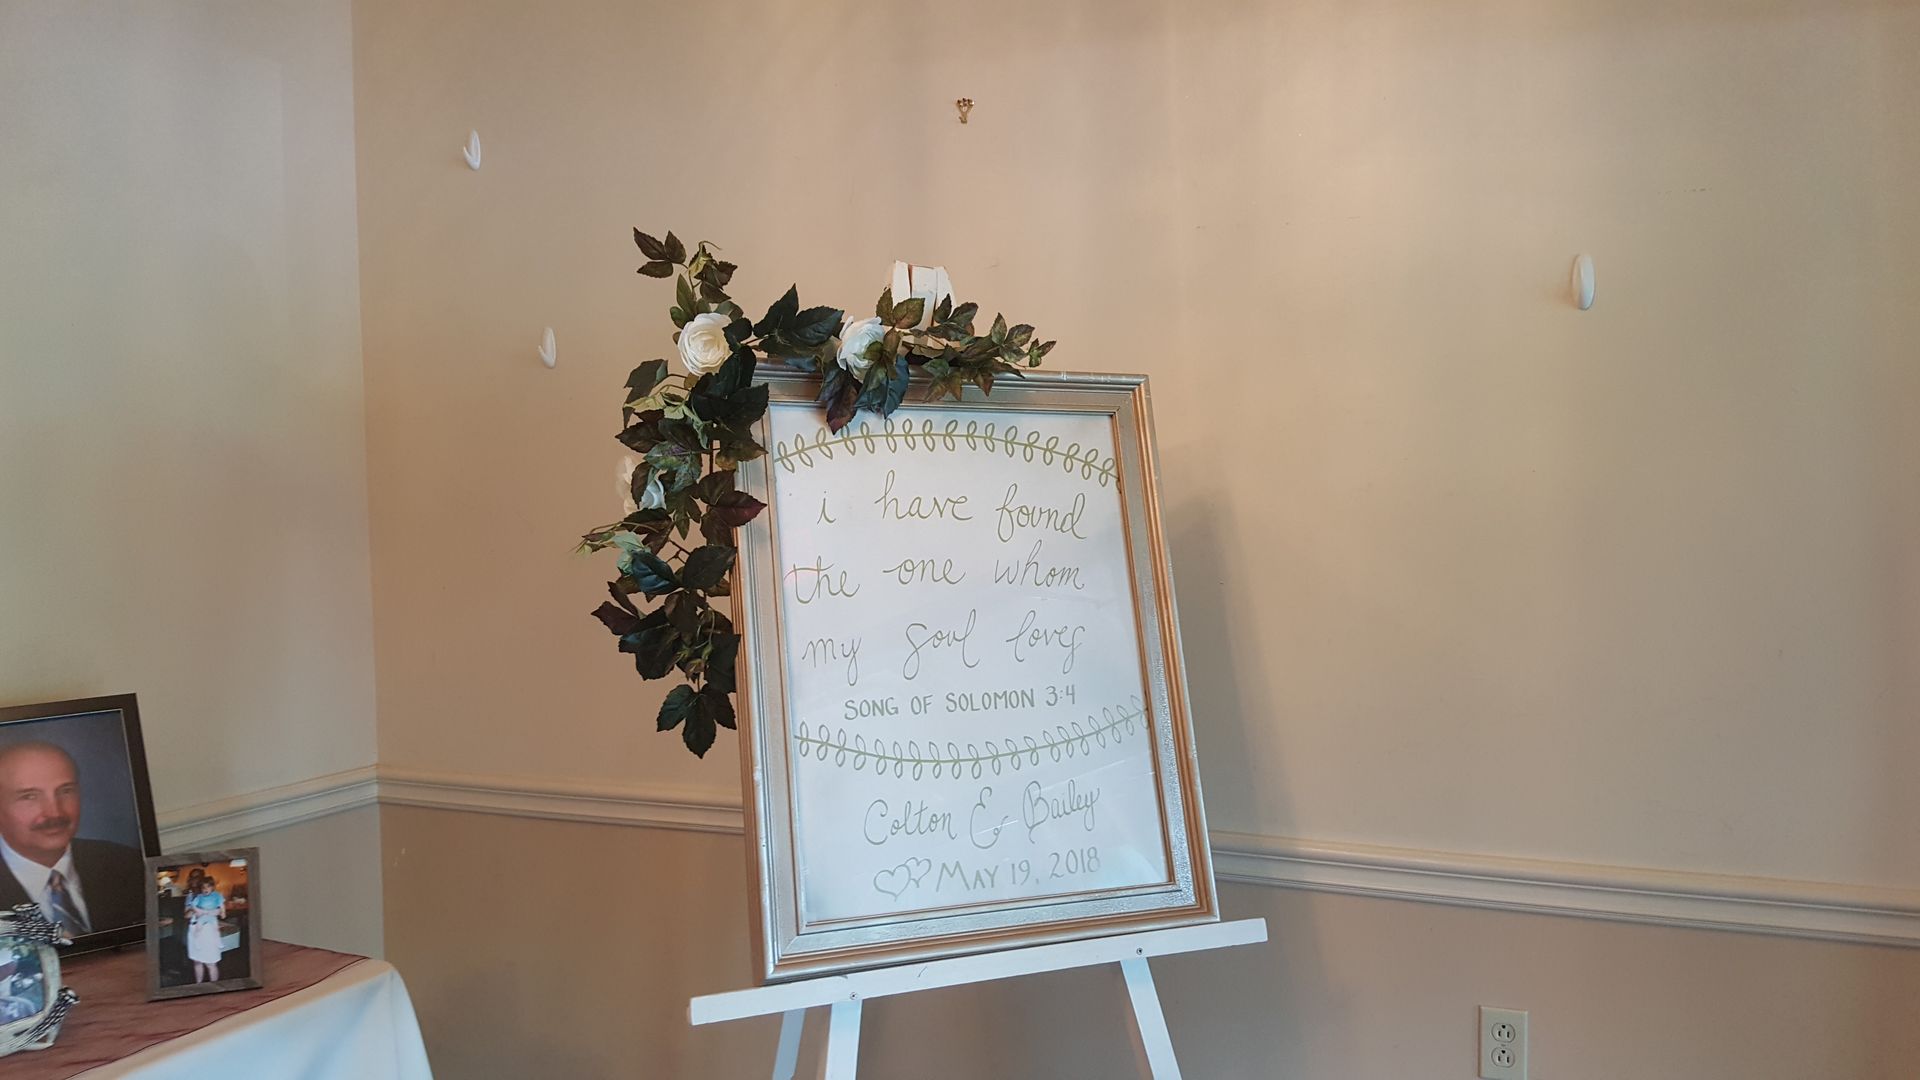 i have found
the one whom
my soul loves
SONG OF SOLOMON 3:4
Colton & Bailey
MAY 19, 2018